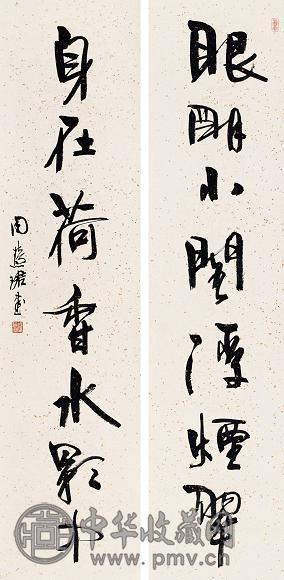 眼明小閣浮煙翠
身在荷香水影中
周慧珺書
中华收藏网
www.pmv.cn